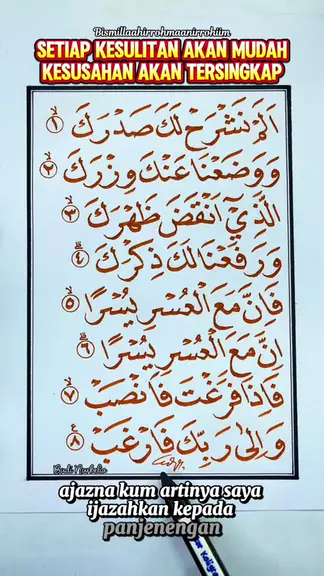 Bismillaahirrohmaanirrohiim
SETIAP KESULITAN AKAN MUDAH
KESUSAHAN AKAN TERSINGKAP
اَلَمْ نَشْرَحْ لَكَ صَدْرَكَ ١
وَوَضَعْنَا عَنْكَ وِزْرَكَ ٢
الَّذِيْٓ اَنْقَضَ ظَهْرَكَ ٣
وَرَفَعْنَا لَكَ ذِكْرَكَ ٤
فَاِنَّ مَعَ الْعُسْرِ يُسْرًا ٥
اِنَّ مَعَ الْعُسْرِ يُسْرًا ٦
فَاِذَا فَرَغْتَ فَانْصَبْ ٧
وَاِلٰى رَبِّكَ فَارْغَبْ ٨
Budi Nurbalia
ajazna kum artinya saya
ijazahkan kepada
panjenengan